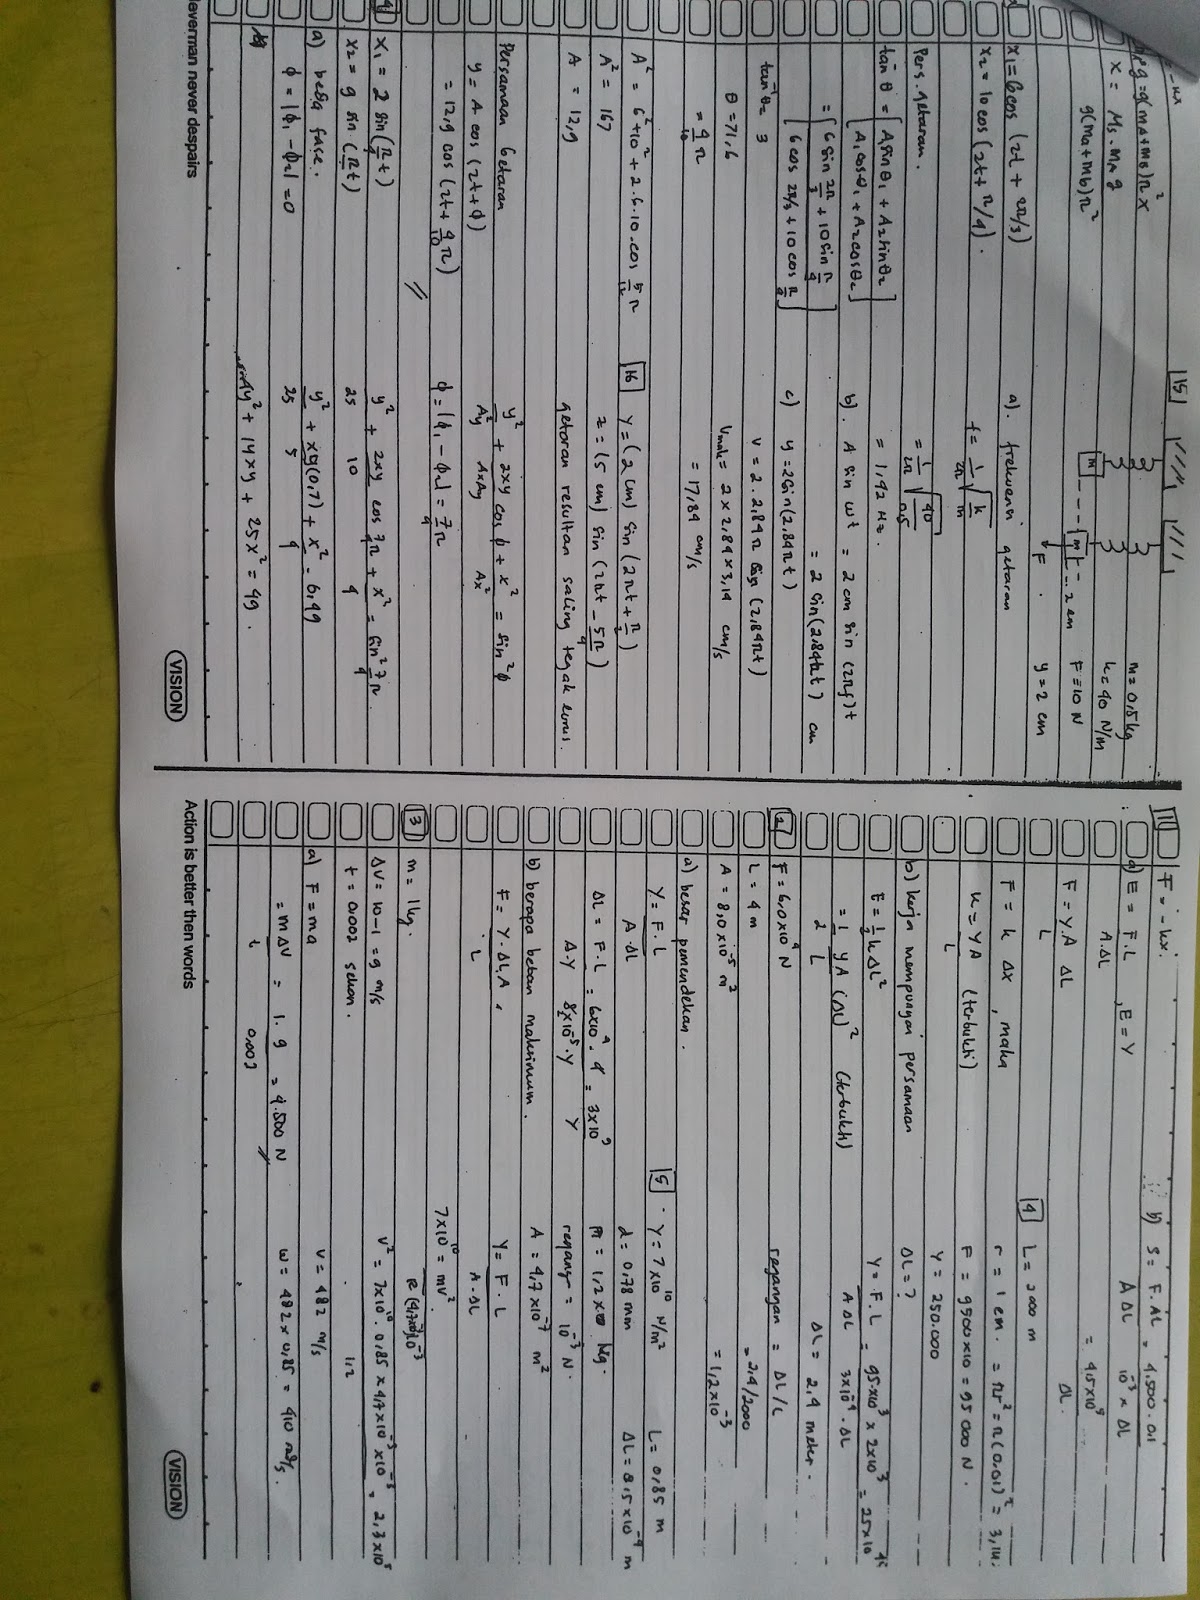 g(mA+mB)π² x
X = Ms . mA g
g(mA+mB)π²
x₁ = 6 cos (2t + 2π/3)
x₂ = 10 cos (2t + π/4).
Pers. getaran.
tan⁻ θ = [A₁ sin θ₁ + A₂ sin θ₂]
[A₁ cos θ₁ + A₂ cos θ₂]
= [6 sin 2π/3 + 10 sin π/4]
[6 cos 2π/3 + 10 cos π/4]
tan⁻¹θ = 3
θ = 71,6
= 4/10 π
A² = 6² + 10² + 2.6.10.cos 5/12 π
A² = 167
A = 12,9
Persamaan Getaran
y = A cos (2t + ϕ)
= 12,9 cos (2t + 4/10 π)
x₁ = 2 sin (π/2 t)
x₂ = 9 sin (π/2 t)
a) beda fase.
ϕ = |ϕ₁ - ϕ₂| = 0
averman never despairs
15
m = 0,5 kg
k = 40 N/m
F = 10 N
F
y = 2 cm
2 cm
a). frekuensi getaran
f = 1/2π √k/m
= 1/2π √40/0,5
= 1,42 Hz.
b). A sin ωt = 2 cm sin (2πf)t
= 2 sin (2,84πt) cm
c) y = 2 sin (2,84πt)
v = 2 . 2,84π sin (2,84πt)
Vmaks = 2 x 2,84 x 3,14 cm/s
= 17,84 cm/s
16 Y = (2 cm) sin (2πt + π/2)
z = (5 cm) sin (2πt - 5π/4)
getaran resultan saling tegak lurus.
y²/Ay² + 2xy/AxAy cos ϕ + x²/Ax² = sin² ϕ
ϕ = |ϕ₁ - ϕ₂| = 7/4 π
y²/25 + 2xy/10 cos 7/4 π + x²/4 = sin² 7/4 π
y²/25 + xy(0,7)/5 + x²/4 = 0,49
4y² + 14xy + 25x² = 49.
VISION
F = -kx.
a) E = F.L / A.ΔL , E = Y
F = Y.A/L ΔL
F = k Δx , maka
k = YA/L (terbukti)
b) kerja mempunyai persamaan
E = 1/2 k ΔL²
= 1/2 YA/L (ΔL)² (terbukti)
2 F = 6,0x10⁴ N
L = 4 m
A = 8,0x10⁻⁵ m²
a) besar pemendekan.
Y = F.L / A.ΔL
ΔL = F.L / A.Y = 6x10⁴.4 / 8x10⁻⁵.Y = 3x10⁹ / Y
b) berapa beban maksimum.
F = Y.ΔL.A / L
3 m = 1 kg.
ΔV = 10-1 = 9 m/s
t = 0,002 sekon.
a) F = ma
= m ΔV / t = 1 . 9 / 0,002 = 4.500 N
Action is better then words
b) S = F.ΔL / A ΔL = 4.500 . 0,1 / 10⁻³ x ΔL
= 4,5x10⁵ / ΔL.
4 L = 2000 m
r = 1 cm. = πr² = π(0,01)² = 3,14
F = 9500x10 = 95000 N.
Y = 250.000
ΔL = ?
Y = F.L / A ΔL = 95x10³ x 2x10³ / 3x10⁻⁴ . ΔL = 25x10
ΔL = 2,4 meter.
regangan = ΔL/L
= 2,4/2000
= 1,2x10⁻³
5 . Y = 7x10¹⁰ N/m² L = 0,85 m
d = 0,78 mm ΔL = 8,5x10⁻⁴ m
regang = 10⁻³ N.
A = 4,7x10⁻⁷ m²
Y = F.L / A.ΔL
7x10¹⁰ = mv²
v² = 7x10¹⁰ . 0,85 x 4,7x10⁻⁷ x10⁻³ / 1,2 = 2,3x10⁵
v = 482 m/s
ω = 482 x 0,85 = 410
VISION